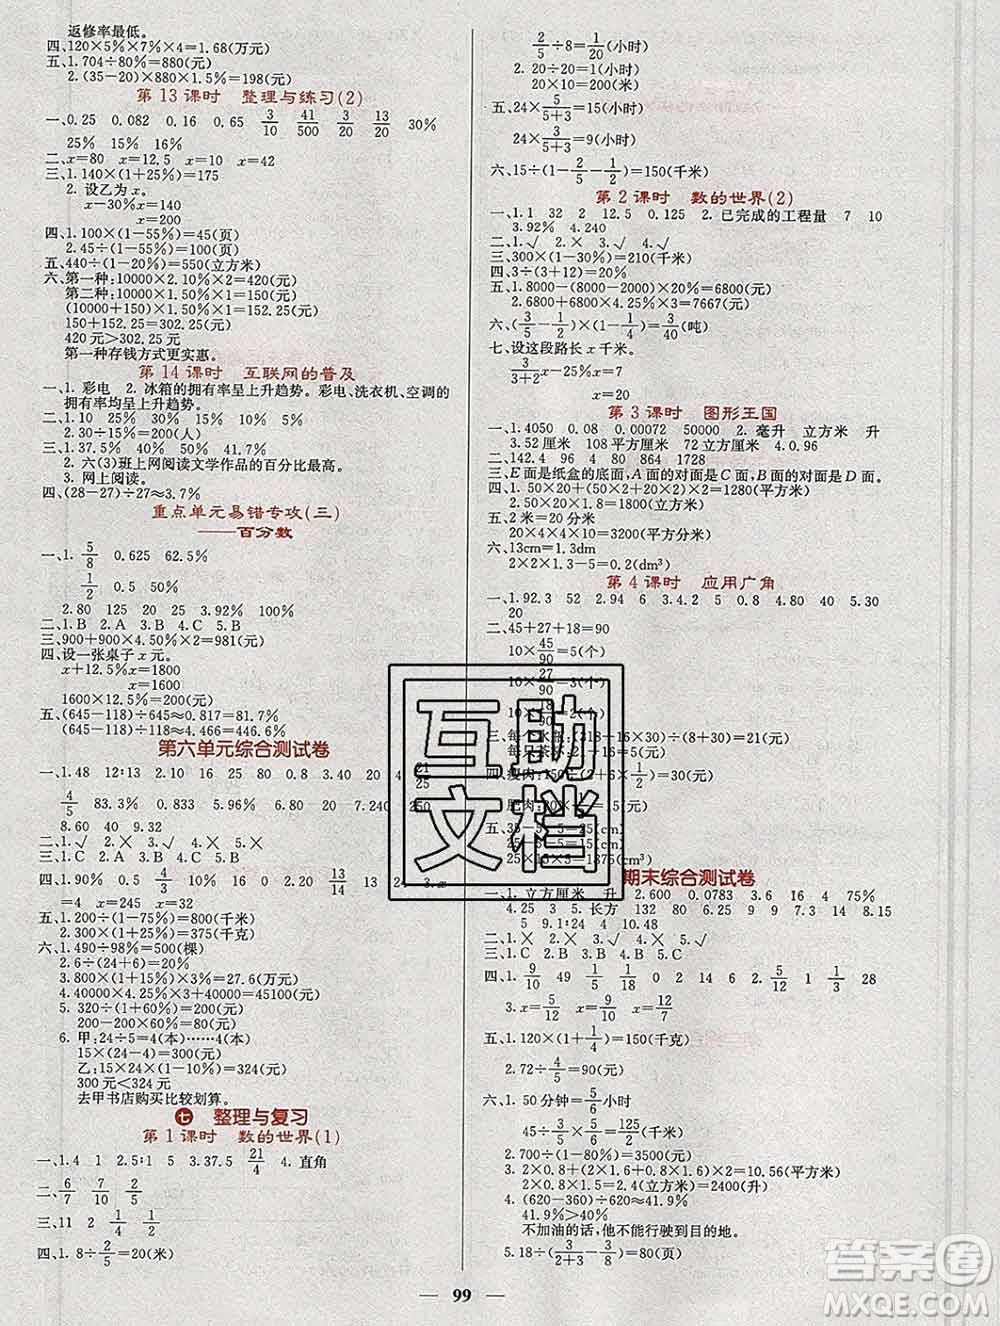 返修率最低。
四、120×5%×7%×4=1.68(万元)
五、1.704÷80%=880(元)
2.(35-20)×880×1.5%=198(元)
第13课时 整理与练习(2)
一、0.25 0.082 0.16 0.65 3/10 41/500 3/4 13/20 30%
25% 15% 16%
二、x=80 x=12.5 x=10 x=42
三、1.140×(1+25%)=175
2. 设乙为x。
x-30%x=140
x=200
四、1.100×(1-55%)=45(页)
2.45÷(1-55%)=100(页)
五、440÷(1-20%)=550(立方米)
六、第一种:10000×2.10%×2=420(元)
第二种:10000×1.50%×1=150(元)
(10000+150)×1.50%×1=152.25(元)
150+152.25=302.25(元)
420元>302.25(元)
第一种存钱方式更实惠。
第14课时 互联网的普及
一、1. 彩电 2. 冰箱的拥有率呈上升趋势。彩电、洗衣机、空调的
拥有率均呈上升趋势。
二、1.10 25% 20% 30% 25%
2.30÷15%=200(人)
三、1.37.5% 40% 30% 50% 41.7%
2. 六(3)班上网阅读文学作品的百分比最高。
3. 网上阅读。
四、(28-27)÷27≈3.7%
重点单元易错专攻(三)
——百分数
一、1. 5/8 0.625 62.5%
1/2 0.5 50%
2.80 125 20 25 3.99.9% 100%
二、1.B 2.A 3.B 4.A
三、900+900×4.50%×2=981(元)
四、设一张桌子x元。
x+12.5%x=1800
x=1600
1600×12.5%=200(元)
五、(645-118)÷645≈0.817=81.7%
(645-118)÷118≈4.466=446.6%
第六单元综合测试卷
一、1.48 12:13 2.10 16 3.25 20 4.80 21/25
4/5 83.3% 0.833 5.96% 6.120 7.240 250
8.60 40 9.32
二、1.√ 2.× 3.× 4.× 5.√
三、1.C 2.A 3.B 4.C 5.A
四、1.90% 0.5 4/3 16 0 2.20 13/14 13 24 3.x
=4 x=240 x=32
五、1.50÷(1-75%)=200(千米)
2.300×(1+25%)=375(千克)
六、1.490÷98%=500(棵)
2.6÷(24+6)=20%
3.800×(1+15%)×3%=27.6(万元)
4.40000×4.25%×3+40000=45100(元)
5.320÷(1+60%)=200(元)
200-200×4%=192(元)
6. 甲:24÷5=4(本)……4(本)
15×(24-4)=300(元)
乙:15×90%×24=324(元)
300元<324(元)
去甲书店购买比较划算。
七 整理与复习
第1课时 数的世界(1)
一、1.4 1 2.5:1 5 3.37.5 21/4 4. 直角
二、6/7 7/10 5/6 1/2
三、11 2 1/4 1/2
四、1. 8÷2/5=20(米)
2/5÷8=1/20(小时)
2. 20÷20=1(小时)
20×10=200(米)
五、24×5/(5+3)=15(小时)
24×3/(5+3)=9(小时)
六、15÷(1-2/5-1/2)=150(千米)
第2课时 数的世界(2)
一、1.1 32 2 12.5 0.125 2. 已完成的工程量 7 10
3.92% 4.240
二、1.√ 2.× 3.√ 4.√
三、300×(1-30%)=210(千米)
四、3÷(3+12)=20%
五、1.8000-(8000-2000)×20%=6800(元)
2.6800+6800×4.25%×3=7667(元)
六、(3/5-1/5)×(1-1/4)=3/40(吨)
七、设这段路长x千米。
3/(3+2)x-25%x=7
x=20
第3课时 图形王国
一、1.4050 0.08 0.00072 50000 2. 毫升 立方米 升
3.52厘米 108平方厘米 72立方厘米 4.0.96
二、142.4 96 80 864 1728
三、E面是纸盒的底面,A面的对面是C面,B面的对面是D面。
四、1.(50×20+50×20)×2=1280(平方米)
2.50×20×1.8=1800(立方米)
五、2米=20分米
20×4×4×10=3200(平方分米)
六、13cm=1.3dm
2×2×1.3-5=0.2(dm³)
第4课时 应用广角
一、1.92.3 52 2.94 6 3.4.2 5 0.8 4.80 5.30
20
二、45+27+18=90
10×45/90=5(个)
10×27/90=3(个)
五、35-5-5=25(cm)
25×15×5=1875(cm)
期末综合测试卷
一、1. 立方厘米 升 2.600 0.0783 3.16 75%
4.25 3 5. 长方 132 80 6.25 9 9 7.14 8.15
5 9.1:24 10.48
二、1.× 2.× 3.√ 4.× 5.√
三、1.C 2.B 3.A 4.B 5.C
四、1. 9/10 49 1/5 0 2 14 6 2. 1/2 28
3.x=5/12 x=3/56
五、1.120×(1+1/4)=150(千克)
2. 72÷4/5=90(元)
六、1.50分钟=5/6(小时)
45÷5/6=54(千米) 5/6÷45=
2.700÷(1-80%)=3500(元)
3.2×1.8+(2×1.6+1.8×1.6)×2=10.56(平方米)
2×0.8×1.5=2.4(立方米)=2400(升)
4.(620-360)÷620≈41.9%
41.9%>30%
不加油的话,他不能行驶到目的地。
5.18÷(3/(2+3)-3/8)=80(页)
互助
文档
答案圈
MXQE.COM
— 99 —